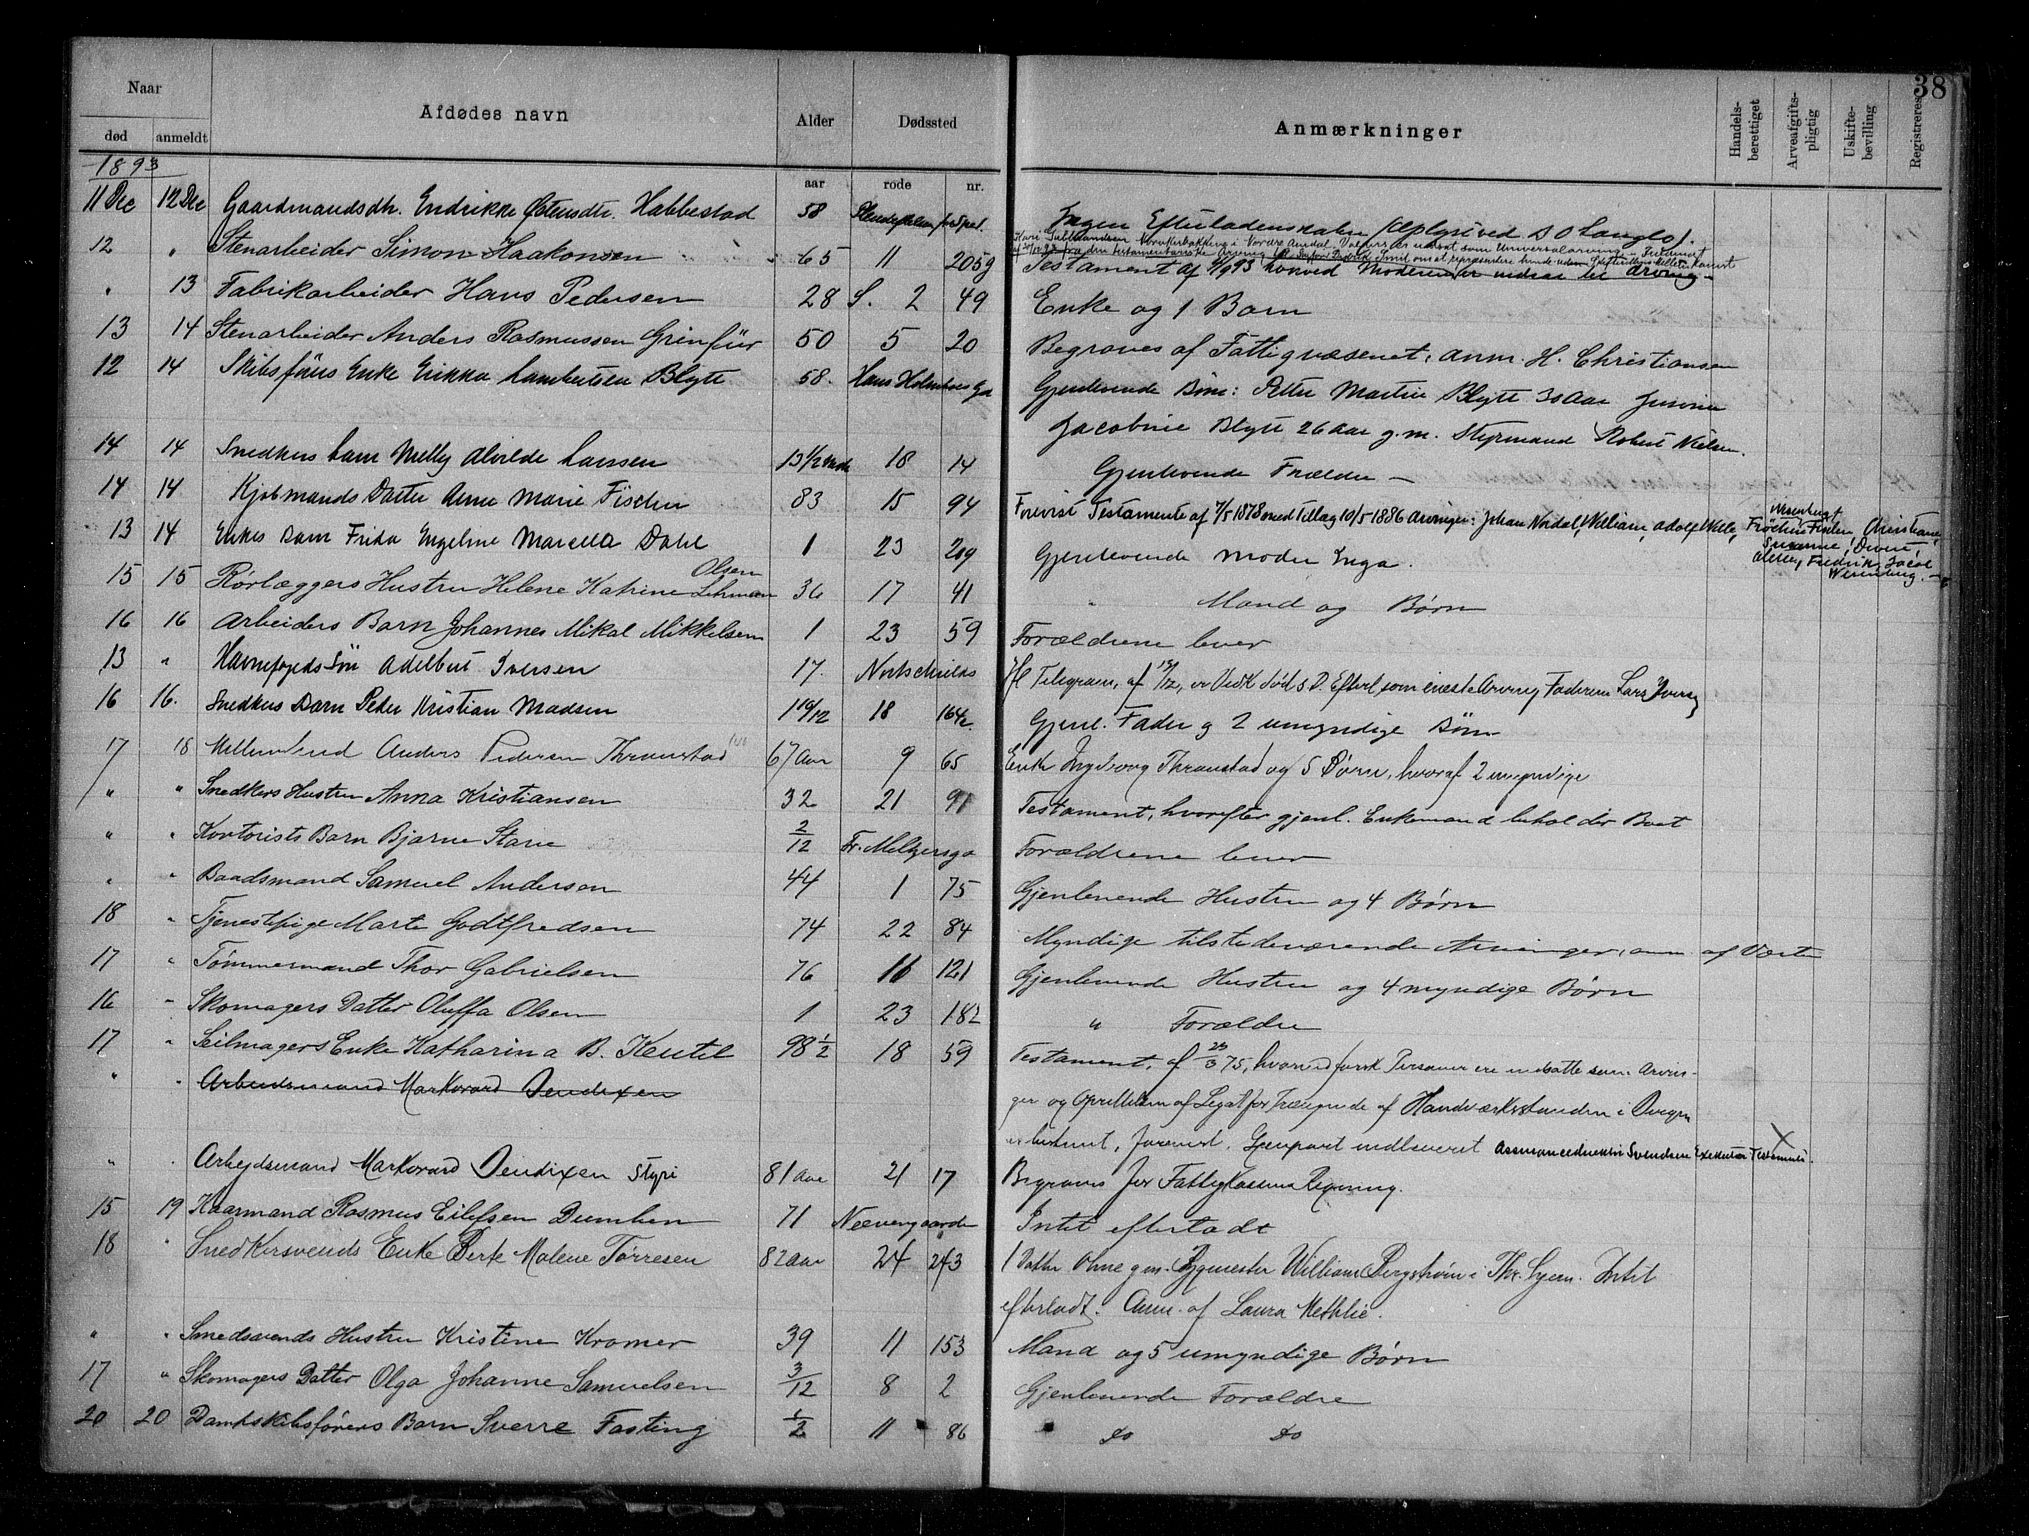 38
Naar
død anmeldt
Afdødes navn
Alder
aar
Dødssted
rode nr.
Anmærkninger
Handels-berettiget
Arveafgifts-pligtig
Uskifte-bevilling
Registreres
1893
11 Dec 12 Dec Gaardmandsdt. Endrikke Østensdtr. Habbestad 58
12 " Stenarbeider Simon Haakonsen 65 11 2059 Testament af 4/9 93 hvorved Moderen er indsat til Arving
" 13 Fabrikarbeider Hans Pedersen 28 S. 2 49 Enke og 1 Barn
13 14 Stenarbeider Anders Rasmussen Grinfür 50 5 20 Begraves af Fattigvæsenet, anm. H. Christiansen
12 14 Skibsførers Enke Erikka Lambertsen Blytt 58. Hans Holmboes gd Gjenlevende Børn: Petter Martin Blytt 30 Aar
Jacobine Blytt 26 aar g. m. Styrmand Robert Nielsen.
14 14 Snedkers barn Melly Alvilde Larssen 13 1/2 18 14 Gjenlevende Forældre —
14 14 Kjøbmands Datter Anne Marie Fischer 83 15 94 Forevist Testamente af 7/5 1878 med Tillæg 10/5 1886 Arvinger: Johan Nordal, William, Adolf
13 14 Enkes Barn Frida Engeline Marcella Dahl 1 23 219 Gjenlevende Moder Inga.
15 15 Rørlæggers Hustru Helene Katrine Olsen Lehmann 36 17 41 " Mand og Børn
16 16 Arbeiders Barn Johannes Mikal Mikkelsen 1 23 59 Forældrene lever
13 " Havnefogeds Søn Adelbert Iversen 17. Telegram, af 19/12, er Vedk død s. D. Efterl. som eneste Arving Faderen Lars Iversen
16 16. Snedkers Barn Peder Kristian Madsen 1 10/12 18 164 Gjenl. Fader og 2 umyndige Børn
17 18 Anders Pedersen Thronstad 67 Aar 9 65 Enke Ingeborg Thronstad og 5 Børn, hvoraf 2 umyndige
" " Snedkers Hustru Anna Kristiansen 32 21 91 Testament, hvorefter gjenl. Enkemand beholder Boet
" " Kontorists Barn Bjarne Starie 2/12 Fr. Meltzersgd Forældrene lever
" " Baadsmand Samuel Andersen 44 1 75 Gjenlevende Hustru og 4 Børn
18 " Tjenestepige Marte Godtfredsen 74 22 84 Myndige tilstedeværende Arvinger, anm. af Værten
17 " Tømmermand Thor Gabrielsen 76 11 121 Gjenlevende Hustru og 4 myndige Børn
16 " Skomagers Datter Oluffa Olsen 1 23 182 " Forældre
17 " Seilmagers Enke Katharina B. Keutel 98 1/2 18 59 Testament, af 23/3 75, hvorved forsk Personer ere indsatte som Arvin-
" " Arbeidsmand Markvard Bendixen
ger og Oprettelsen af Legat for Trængende af Haandværksstanden i Bergen
er bestemt, forevist. Gjenpart indleveret Assurancedirektør Svendsen Exekutor Testamenti. X
" " Arbejdsmand Markvard Bendixen Styri 81 Aar 21 17 Begraves for Fattigkassens Regning.
15 19 Kaarmand Rasmus Eilefsen Dumben 71 Nævengaarden Intet efterladt
18 " Snedkersvends Enke Berte Malene Tørresen 82 aar 24 243 1 Datter Oline gm. Bygmester William Bergstrøm i Thr.hjem. Intet
efterladt. Anm. af Laura Methlie.
" " Smedsvends Hustru Kristine Kromer 39 11 153 Mand og 5 umyndige Børn
17 " Skomagers Datter Olga Johanne Samuelsen 3/12 8 2 Gjenlevende Forældre
20 20 Dampskibsførers Barn Sverre Fasting 1/2 11 86 do do